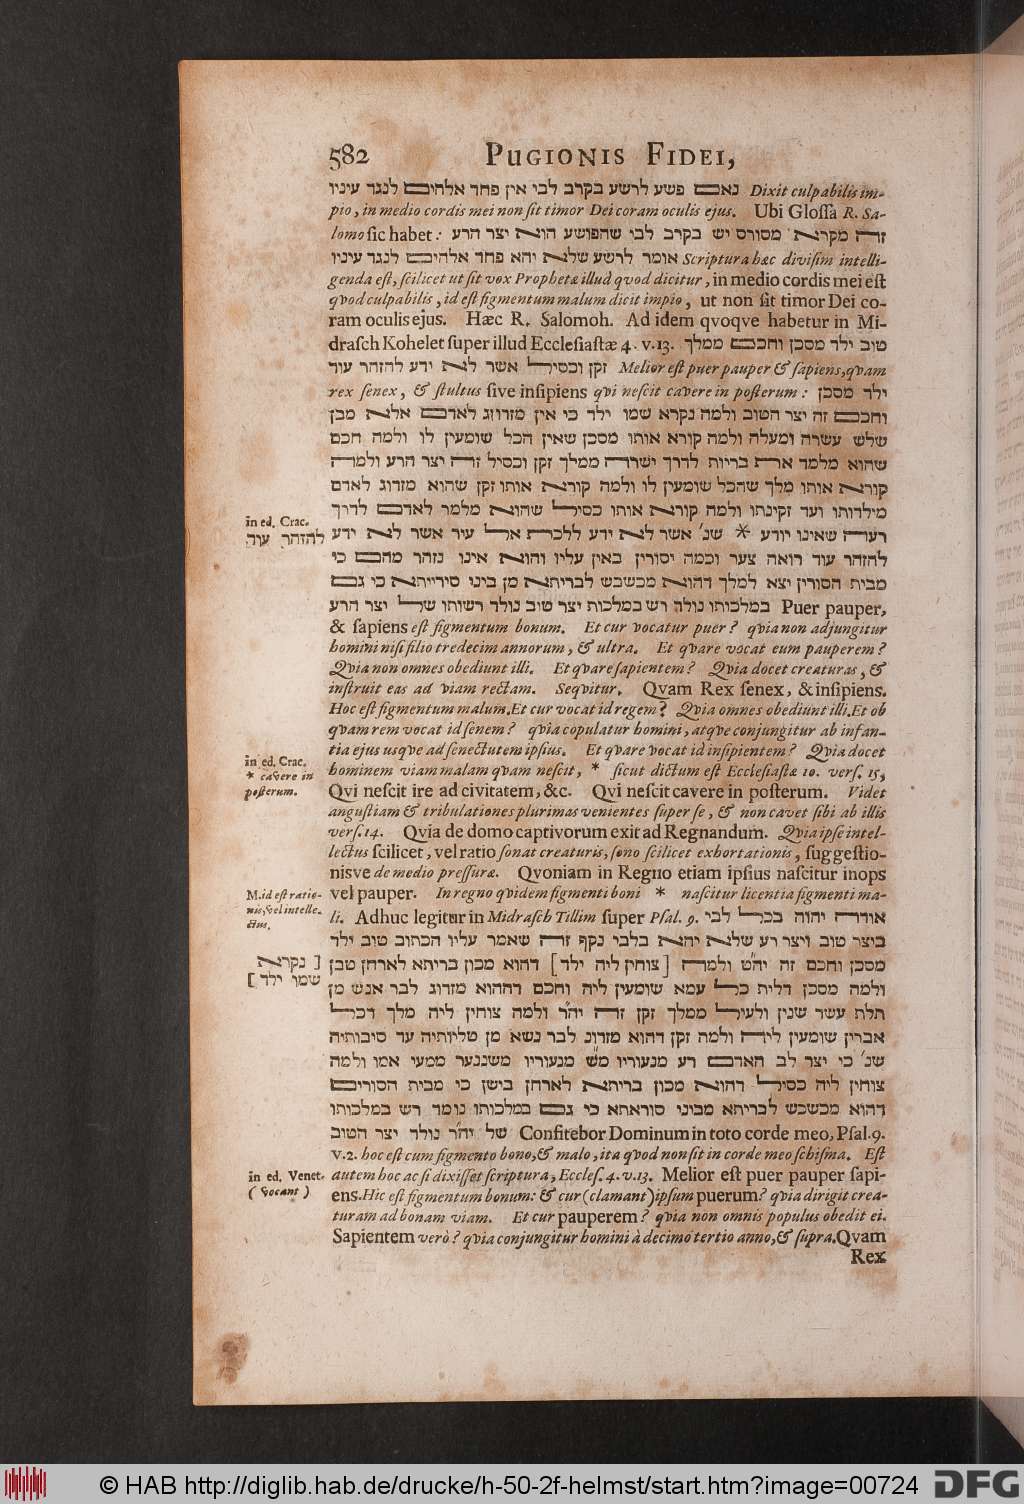 582 PUGIONIS FIDEI,
נאם פשע לרשע בקרב לבי אין פחד אלהים לנגד עיניו Dixit culpabilis im-
pio, in medio cordis mei non sit timor Dei coram oculis ejus. Ubi Glossa R. Sa-
lomo sic habet: זה מקרא מסורס יש בקרב לבי שהפושע הוא יצר הרע
אומר לרשע שלא יהא פחד אלהים לנגד עיניו Scriptura hæc divisim intelli-
genda est, scilicet ut sit vox Prophetæ illud qvod dicitur, in medio cordis mei est
qvod culpabilis, id est figmentum malum dicit impio, ut non sit timor Dei co-
ram oculis ejus. Hæc R. Salomoh. Ad idem qvoqve habetur in Mi-
drasch Kohelet super illud Ecclesiastæ 4. v. 13. טוב ילד מסכן וחכם ממלך
זקן וכסיל אשר לא ידע להזהר עוד Melior est puer pauper & sapiens, qvam
rex senex, & stultus sive insipiens qvi nescit cavere in posterum: ילד מסכן
וחכם זה יצר הטוב ולמה נקרא שמו ילד כי אין מזדווג לאדם אלא מבן
שלש עשרה ומעלה ולמה קורא אותו מסכן שאין הכל שומעין לו ולמה חכם
שהוא מלמד את בריות לדרך ישרה ממלך זקן וכסיל זה יצר הרע ולמה
קורא אותו מלך שהכל שומעין לו ולמה קורא אותו זקן שהוא מזדוג לאדם
מילדותו ועד זקינתו ולמה קורא אותו כסיל שהוא מלמד לאדם לדרך
in ed. Crac.
להזהר עוד
רעה שאינו יודע * שנ' אשר לא ידע ללכת אל עיר אשר לא ידע
להזהר עוד רואה צער וכמה יסורין באין עליו והוא אינו נזהר מהם כי
מבית הסורין יצא למלך דהוא מכשכש לבריתא מן ביני סירייתא כי גם
במלכותו נולד רש במלכות יצר טוב נולד רשותו של יצר הרע Puer pauper,
& sapiens est figmentum bonum. Et cur vocatur puer? qvia non adjungitur
homini nisi filio tredecim annorum, & ultra. Et qvare vocat eum pauperem?
Qvia non omnes obediunt illi. Et qvare sapientem? Qvia docet creaturas, &
instruit eas ad viam rectam. Seqvitur. Qvam Rex senex, & insipiens.
Hoc est figmentum malum. Et cur vocat id regem? Qvia omnes obediunt illi. Et ob
qvam rem vocat id senem? qvia copulatur homini, atqve conjungitur ab infan-
tia ejus usqve ad senectutem ipsius. Et qvare vocat id insipientem? Qvia docet
in ed. Crac.
* cavere in
posterum.
hominem viam malam qvam nescit, * sicut dictum est Ecclesiastæ 10. vers. 15,
Qvi nescit ire ad civitatem, &c. Qvi nescit cavere in posterum. Videt
angustiam & tribulationes plurimas venientes super se, & non cavet sibi ab illis
vers. 14. Qvia de domo captivorum exit ad Regnandum. Qvia ipse intel-
lectus scilicet, vel ratio sonat creaturis, sono scilicet exhortationis, suggestio-
nisve de medio pressuræ. Qvoniam in Regno etiam ipsius nascitur inops
M. id est ratio-
nis, vel intelle-
ctus.
vel pauper. In regno qvidem figmenti boni * nascitur licentia figmenti ma-
li. Adhuc legitur in Midrasch Tillim super Psal. 9. אודה יהוה בכל לבי
ביצר טוב ויצר רע שלא יהא בלבי נקף זה שאמר עליו הכתוב טוב ילד
[ נקרא
שמו ילד ]
מסכן וחכם זה יה"ט ולמה [ צוחין ליה ילד ] דהוא מכון בריתא לארחן טבן
ולמה מסכן דלית כל עמא שומעין ליה וחכם דההוא מזדוג לבר אנש מן
תלת עשר שנין ולעיל ממלך זקן זה יה"ר ולמה צוחין ליה מלך דכל
אברין שומעין ליה ולמה זקן דהוא מזדוג לבר נשא מן טליותיה עד סיבותיה
שנ' כי יצר לב האדם רע מנעוריו מש מנעוריו משננער ממעי אמו ולמה
צוחין ליה כסיל דהוא מכון בריתא לארחן בישן כי מבית הסורים
דהוא מכשכש לבריתא מביני סוראתא כי גם במלכותו נומד רש במלכותו
של יה"ר נולד יצר הטוב Confitebor Dominum in toto corde meo, Psal. 9.
v. 2. hoc est cum figmento bono, & malo, ita qvod non sit in corde meo schisma. Est
in ed. Venet.
( vocant )
autem hoc ac si dixisset scriptura, Eccles. 4. v. 13. Melior est puer pauper sapi-
ens. Hic est figmentum bonum: & cur (clamant) ipsum puerum? qvia dirigit crea-
turam ad bonam viam. Et cur pauperem? qvia non omnis populus obedit ei.
Sapientem verò? qvia conjungitur homini à decimo tertio anno, & supra. Qvam
Rex
© HAB http://diglib.hab.de/drucke/h-50-2f-helmst/start.htm?image=00724 DFG